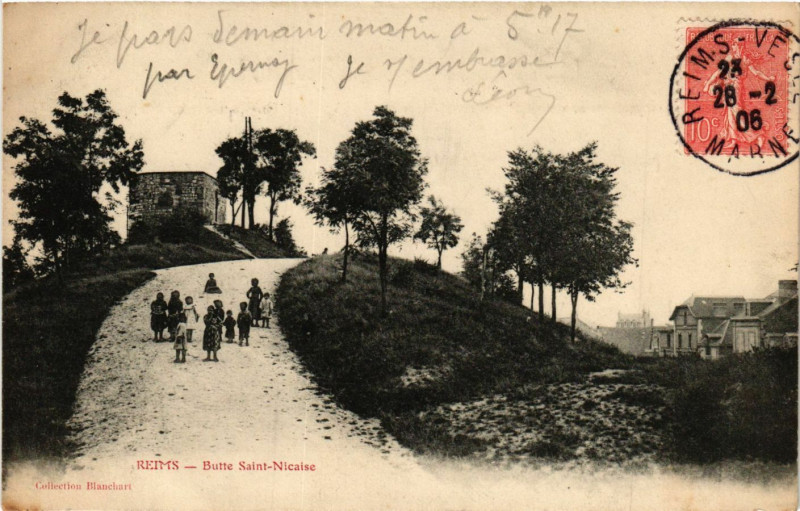 Je pars demain matin à 5h 17
par Epernay Je t'embrasse
Léon
REIMS - VESLE
23
28 -2
06
MARNE
10c
REIMS — Butte Saint-Nicaise
Collection Blanchart